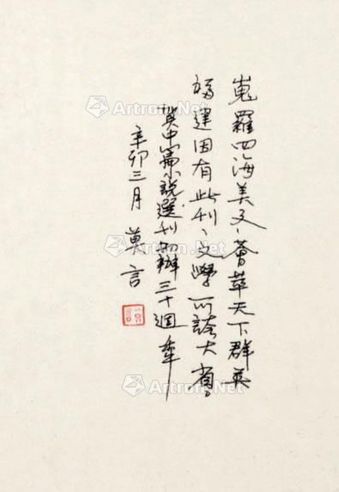 嵬羅四海美文、薈萃天下群英
福建因有此刊、文學可誇大省。
賀中篇小說選刊創辦三十週年
辛卯三月 莫言
Artron.Net
Artron.Net
Artron.Net